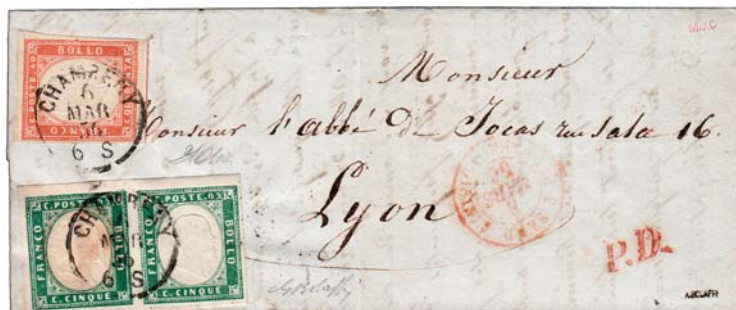 BOLLO
C. POSTE 40
C. QUARANTA
FRANCO
CHAMBERY
6
MAR
56
6 S
Monsieur
Monsieur l'abbé De Jocas rue Sala 16.
Lyon
P.D.
C. POSTE 05
FRANCO
BOLLO
C. CINQUE
C. POSTE 05
FRANCO
BOLLO
C. CINQUE
CHAMBERY
MAR
6 S